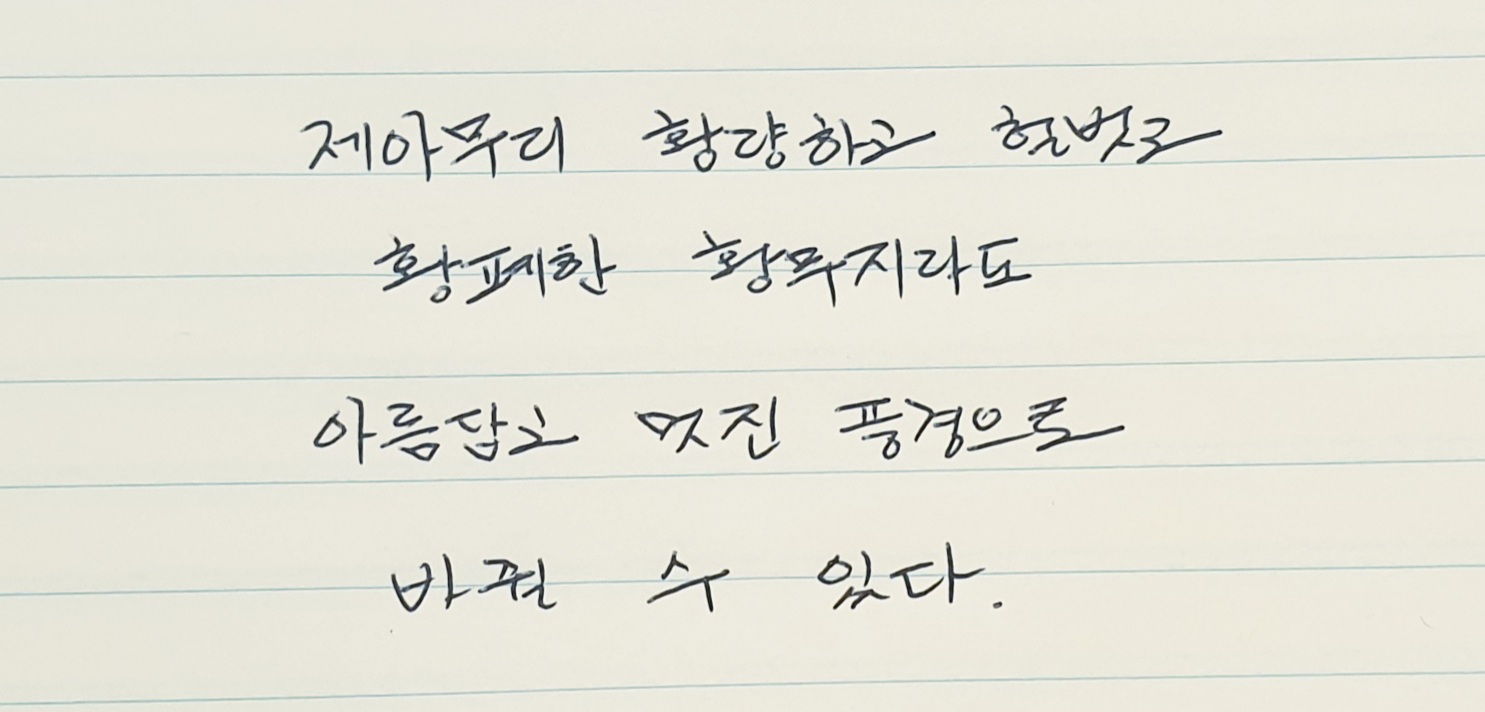 제아무리 황량하고 헐벗고
황폐한 황무지라도
아름답고 멋진 풍경으로
바뀔 수 있다.